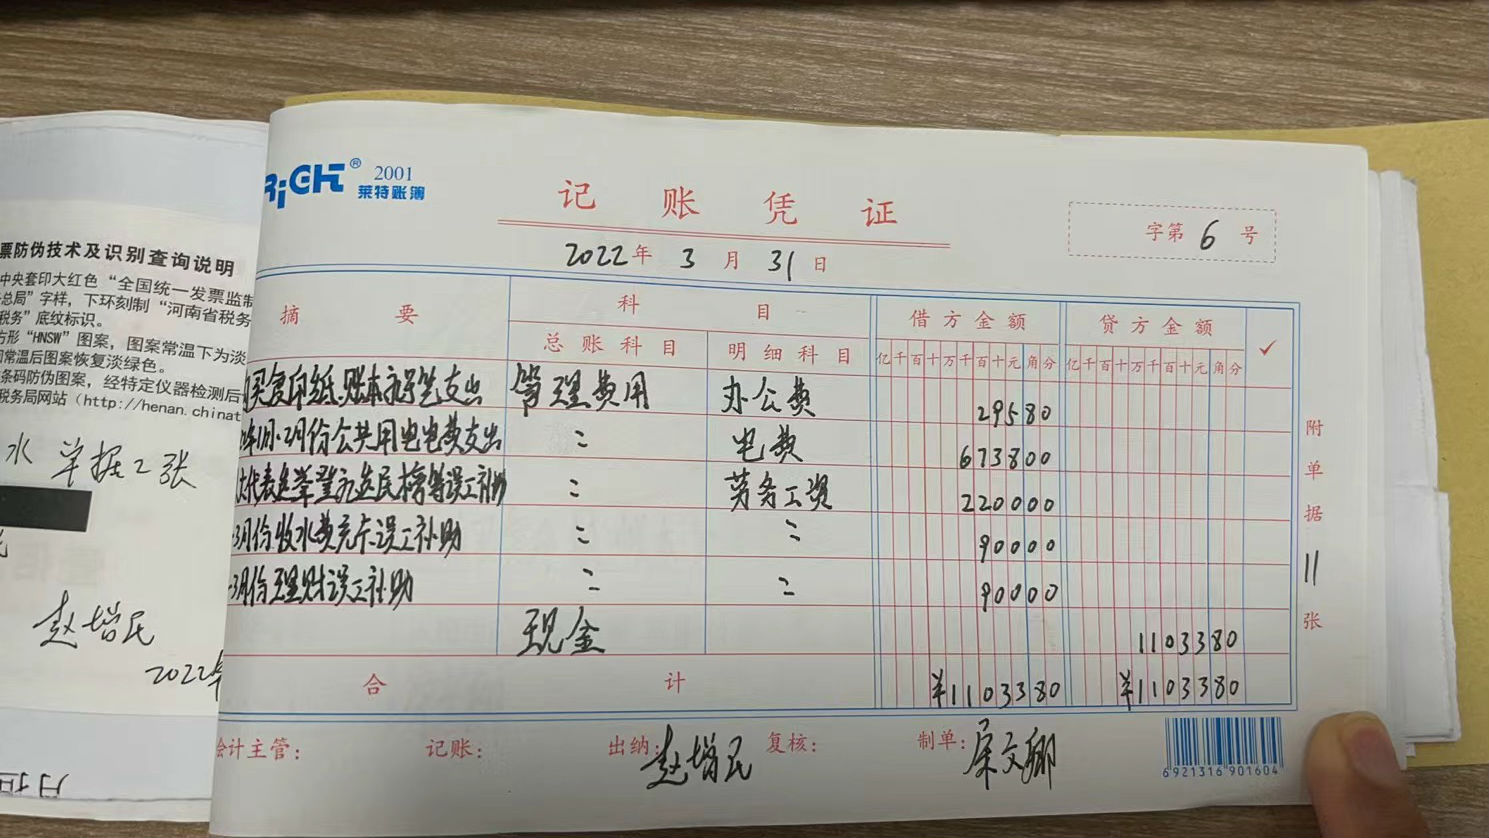 票防伪技术及识别查询说明
中央套印大红色“全国统一发票监制
总局”字样，下环刻制“河南省税务
税务”底纹标识。
方形“HNSW”图案，图案常温下为淡
常温后图案恢复淡绿色。
条码防伪图案，经特定仪器检测后
税务局网站（http://henan.chinat
水 单据2张
赵增民
2022年
RiGHT® 2001
莱特账簿
记账凭证
字第 6 号
2022年 3月 31日
摘要 科目 借方金额 贷方金额 ✓
总账科目 明细科目 亿千百十万千百十元角分 亿千百十万千百十元角分
买复印纸.账本 支出 管理费用 办公费 29580
年1月.2月份公共用电电费支出 〃 电费 673800
代表选举登记选民榜等误工补助 〃 劳务工资 220000
3月份收水费充卡误工补助 〃 〃 90000
3月份理财误工补助 〃 〃 90000
现金 1103380
合计 ¥1103380 ¥1103380
附单据 11 张
会计主管： 记账： 出纳：赵增民 复核： 制单：文卿
6921316901604